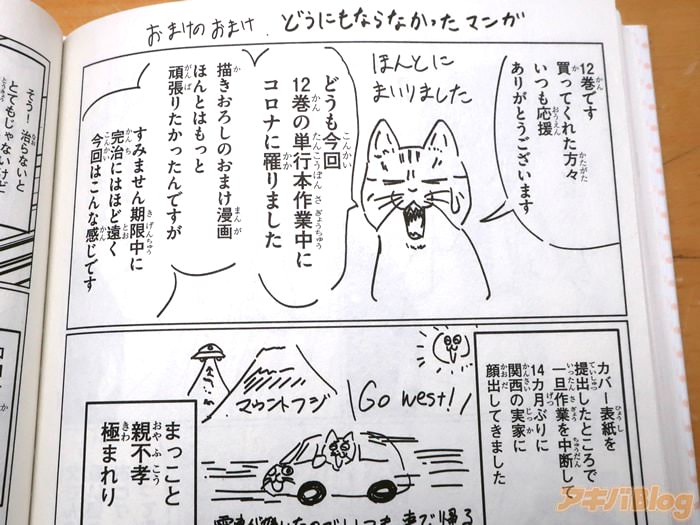 おまけのおまけ.どうにもならなかったマンガ
12巻です
買ってくれた方々
いつも応援
ありがとうございます
ほんとに
まいりました
どうも今回
12巻の単行本作業中に
コロナに罹りました
描きおろしのおまけ漫画
ほんとはもっと
頑張りたかったんですが
すみません期限中に
完治にはほど遠く
今回はこんな感じです
そう！治らないと
とてもじゃないけど
カバー表紙を
提出したところで
一旦作業を中断して
14カ月ぶりに
関西の実家に
顔出してきました
Go west!!
マウントフジ
まっこと
親不孝
極まれり
アキバBlog